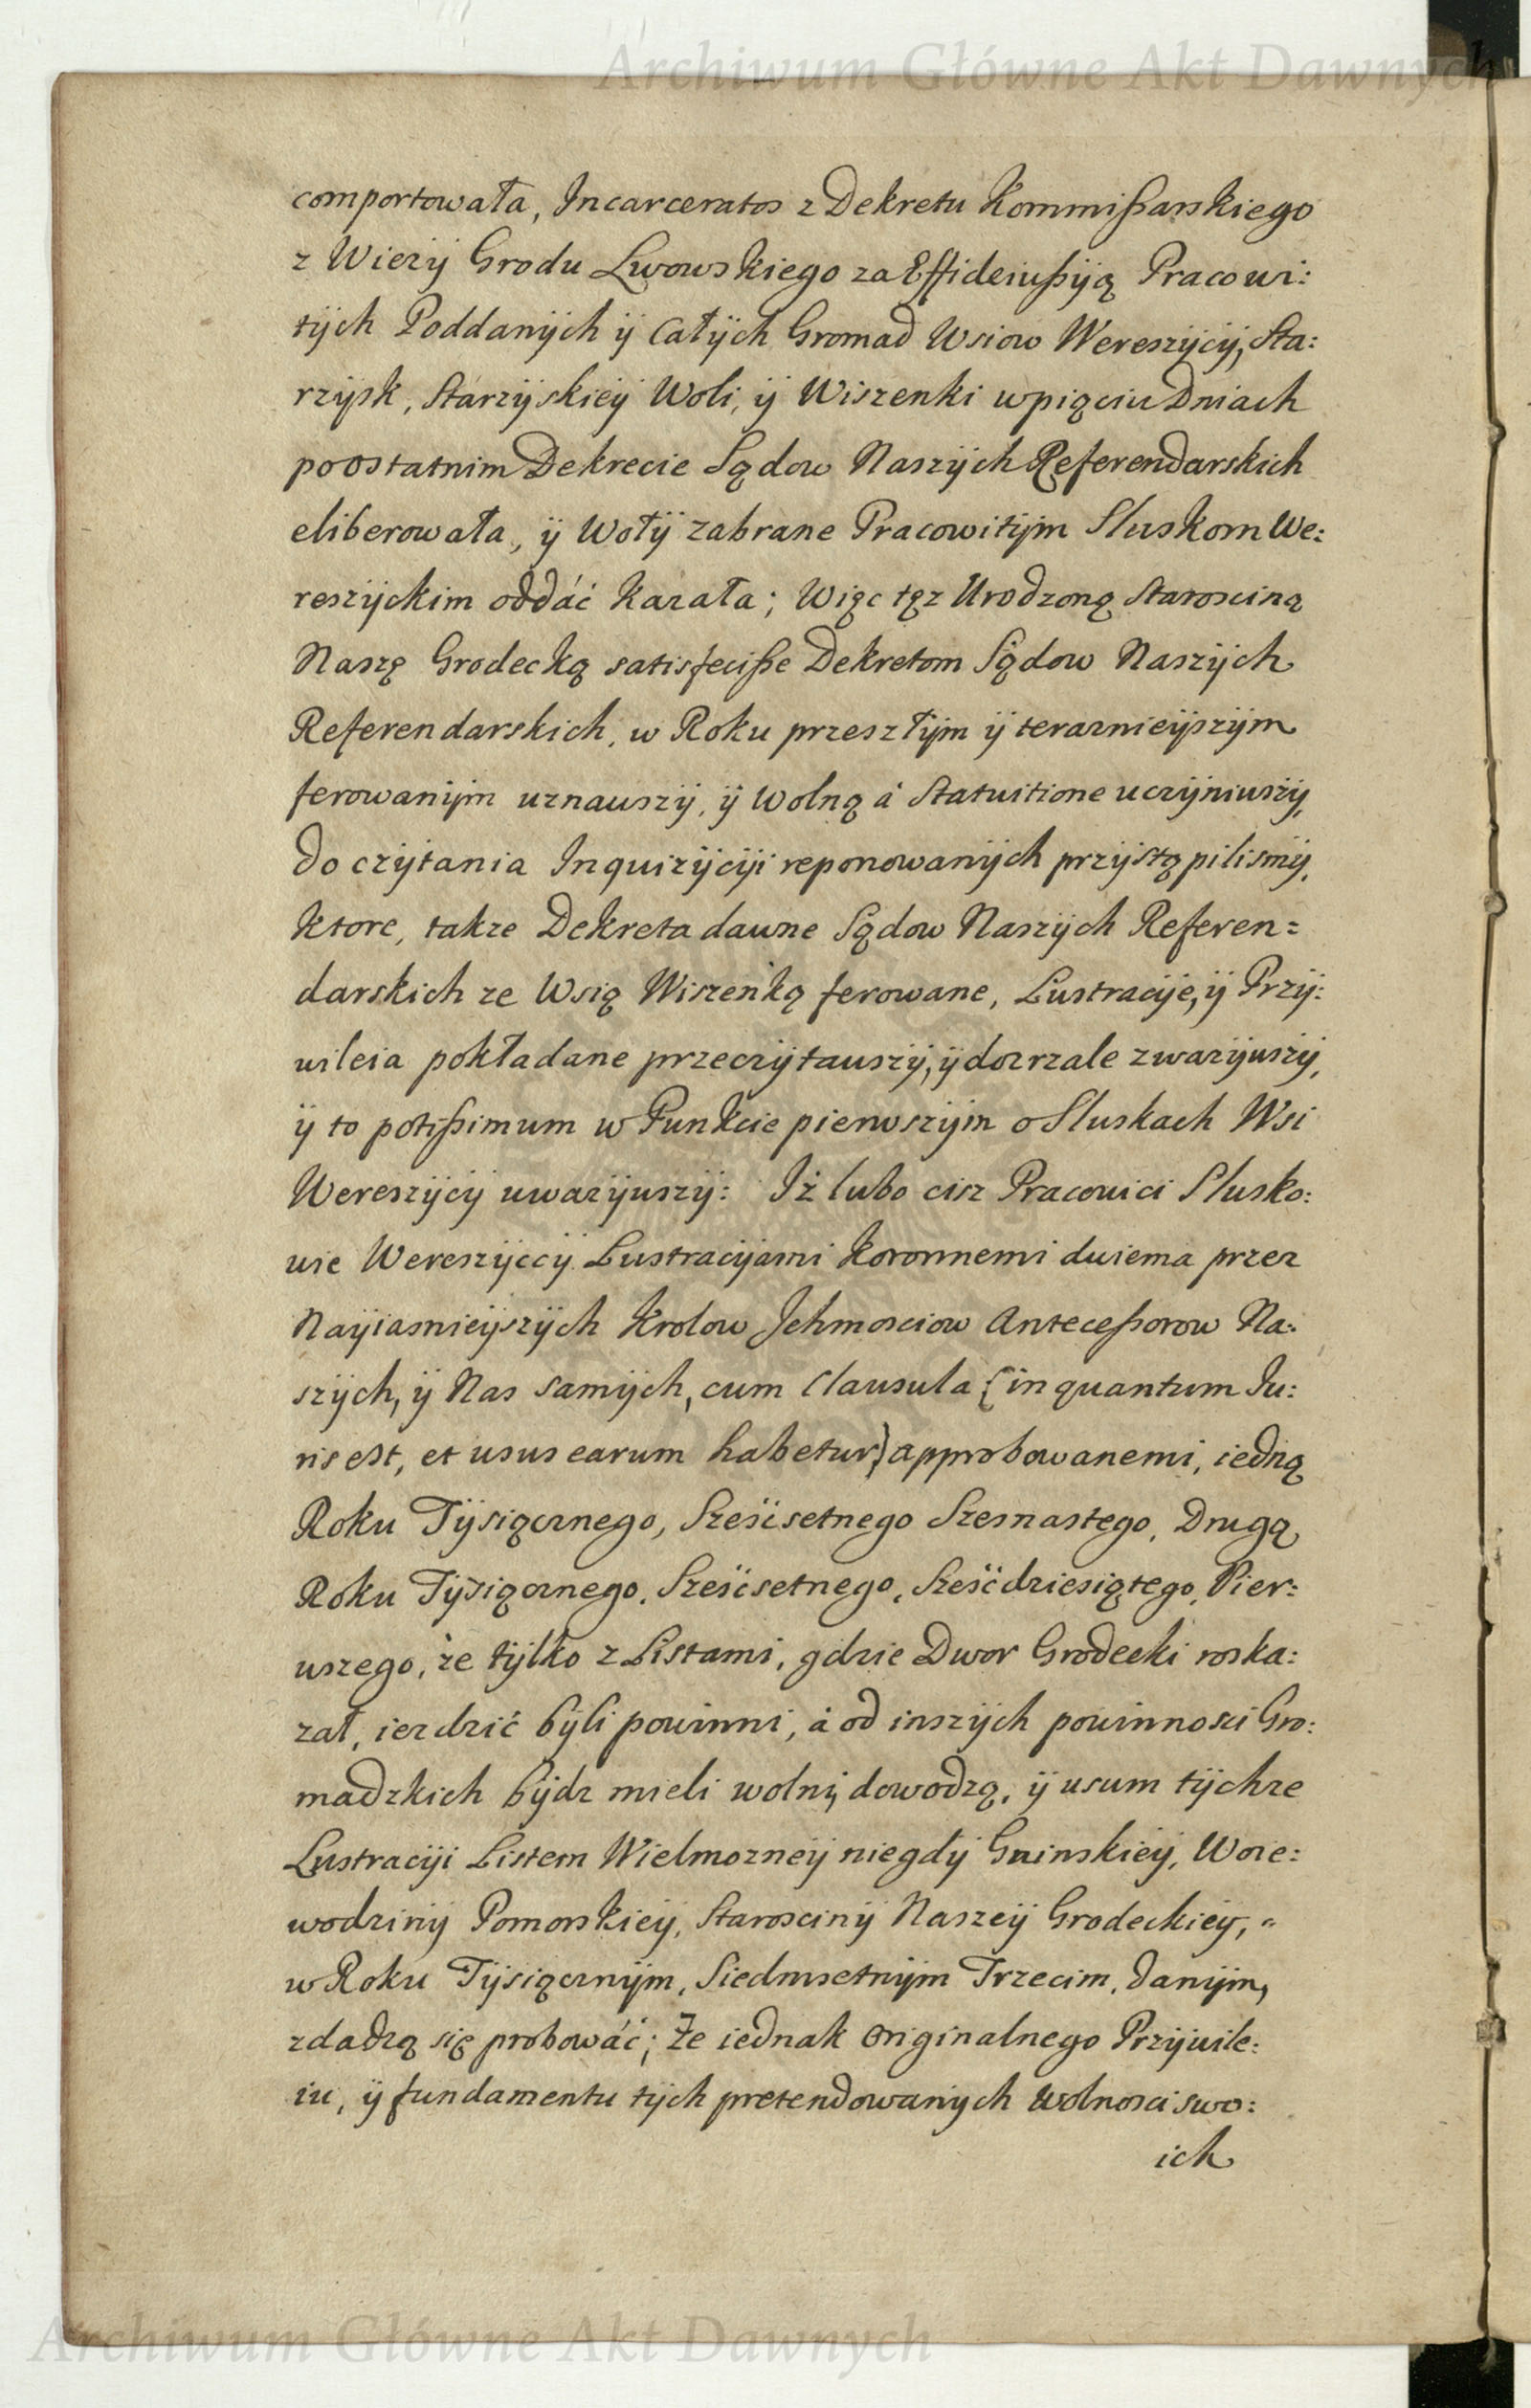 Archiwum Główne Akt Dawnych
comportowała, Incarceratos z Dekretu Kommißarskiego
z Wiezÿ Grodu Lwowskiego za Effideiußÿą Pracowi:
tÿch Poddanÿch ÿ Całÿch Gromad Wsiow Wereszÿcÿ, Sta:
rzÿsk, Starzÿskieÿ Woli, ÿ Wiszenki w piąciu Dniach
po ostatnim Dekrecie Sądow Naszÿch Referendarskich
eliberowała, ÿ Wołÿ zabrane Pracowitÿm Sluskom We:
reszÿckim oddáć kazała; Więc tęz Urodzoną Starosciną
Naszę Grodecką satisfeciße Dekretom Sądow Naszÿch
Referendarskich, w Roku przeszłÿm ÿ terazniejszÿm
ferowanÿm uznauszÿ, ÿ Wolną á Statuitione uczÿniuszÿ,
do czÿtania Inquizÿcÿi reponowanÿch przÿstąpilismÿ,
ktore, takze Dekreta daune Sądow Naszÿch Referen=
darskich ze Wsią Wiszenką ferowane, Lustracÿe, ÿ Przÿ:
uileia pokładane przeczÿtauszÿ, ÿ dozrzale zwazÿuszÿ,
ÿ to potißimum w Punkcie pierwszÿm o Sluskach Wsi
Wereszÿcÿ uwazÿuszÿ: Iż lubo cisz Pracouici Slusko:
uie Wereszÿccÿ Lustracÿami Koronnemi duiema przez
Naÿiasnieÿszÿch Krolow Jchmosciow Anteceßorow Na:
szÿch, ÿ Nas samÿch, cum Clausula {in quantum Iu:
ris est, et usus earum habetur} approbowanemi, iedną
Roku Tÿsiącznego, Sześćsetnego Szesnastego, Drugą
Roku Tÿsiącznego, Sześćsetnego, Sześćdziesiątego, Pier:
uszego, że tÿlko z Listami, gdzie Dwor Grodecki roska:
zał, iezdzić bÿli powinni, á od inszÿch powinnosci Gro:
madzkich bÿdz mieli wolni, dowodzą, ÿ usum tÿchze
Lustracÿi Listem Wielmozneÿ niegdÿ Gninskieÿ, Woie:
wodzinÿ Pomorskieÿ, Staroscinÿ Naszeÿ Grodeckieÿ,
w Roku Tÿsiącznÿm, Siedmsetnÿm Trzecim, danÿm,
zdadzą się probowáć; Że iednak Originalnego Przÿuile:
iu, ÿ fundamentu tÿch pretendowanÿch Wolnosci swo:
ich
Archiwum Główne Akt Dawnych